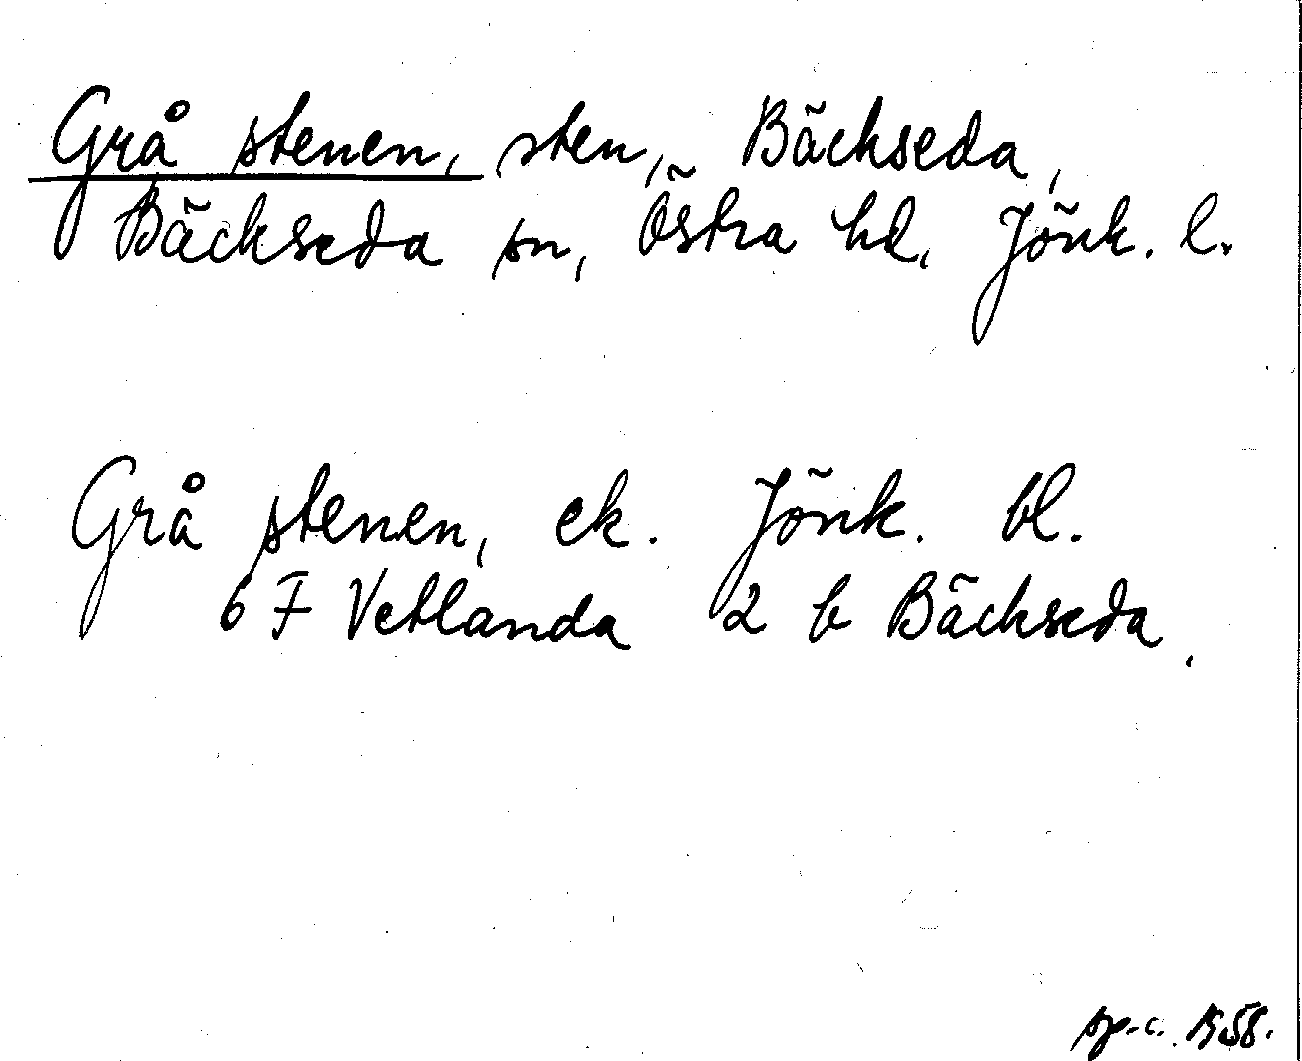 Grå stenen, sten, Bäckseda,
Bäckseda sn, Östra hd, Jönk. l.
Grå stenen, ek. Jönk. bl.
6 F Vetlanda 2 b Bäckseda.
1958.